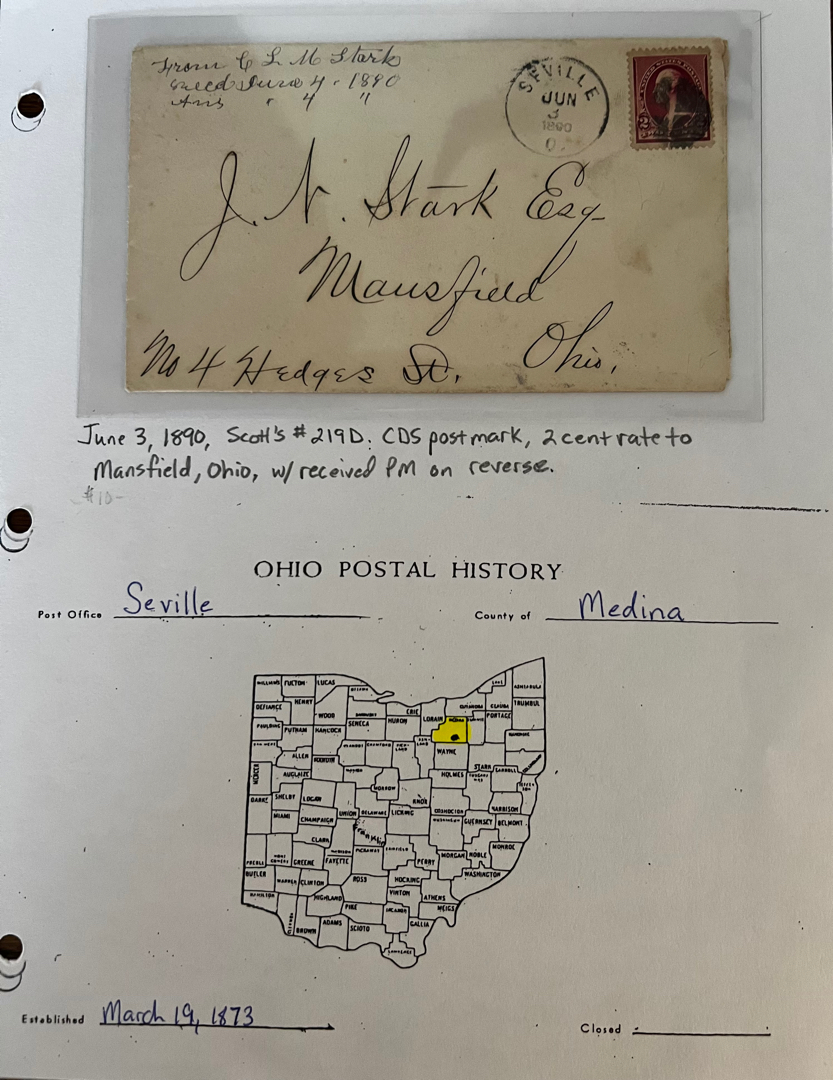 From C L M Stark
Recd June 4 - 1890
Ans " 4 "
SEVILLE
JUN
3
1890
O.
2
J. N. Stark Esq
Mansfield
Ohio,
No 4 Hedges St.
June 3, 1890, Scott's #219D. CDS postmark, 2 cent rate to
Mansfield, Ohio, w/ received PM on reverse.
#10-
OHIO POSTAL HISTORY
Post Office Seville County of Medina
WILLIAMS FULTON LUCAS OTTAWA LAKE ASHTABULA
DEFIANCE HENRY WOOD SANDUSKY ERIE HURON LORAIN MEDINA GEAUGA TRUMBUL
PAULDING PUTNAM HANCOCK SENECA PORTAGE
ALLEN WAYNE
MERCER AUGLAIZE HOLMES STARK CARROLL
DARKE SHELBY LOGAN MORROW KNOX COSHOCTON HARRISON
MIAMI CHAMPAIGN UNION DELAWARE LICKING GUERNSEY BELMONT
CLARK Franklin
PREBLE GREENE FAYETTE PICKAWAY PERRY MORGAN NOBLE MONROE
BUTLER WARREN CLINTON ROSS HOCKING WASHINGTON
HAMILTON HIGHLAND PIKE VINTON ATHENS MEIGS
BROWN ADAMS SCIOTO GALLIA
Established March 19, 1873 Closed